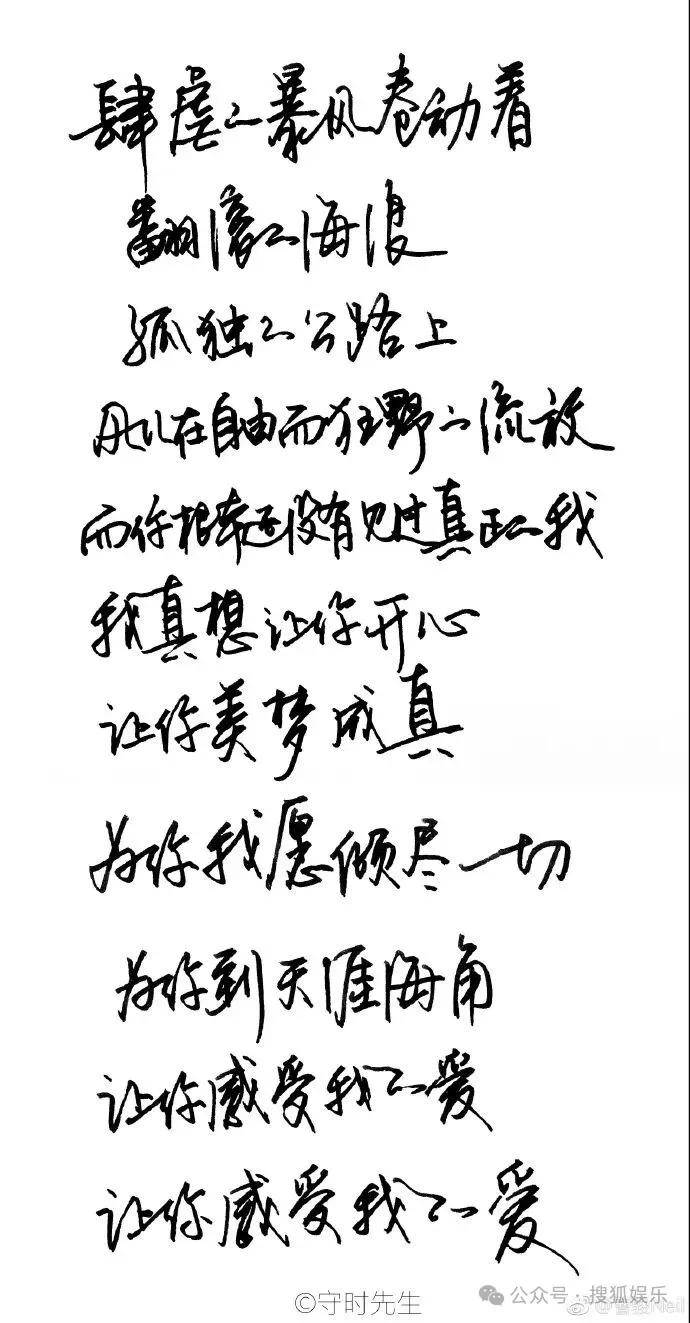 肆虐的暴风卷动着
翻滚的海浪
孤独的公路上
风儿在自由而狂野的流放
而你根本还没有见过真正的我
我真想让你开心
让你美梦成真
为你我愿倾尽一切
为你到天涯海角
让你感受我的爱
让你感受我的爱
©守时先生
公众号 · 搜狐娱乐
@曹骏Neil